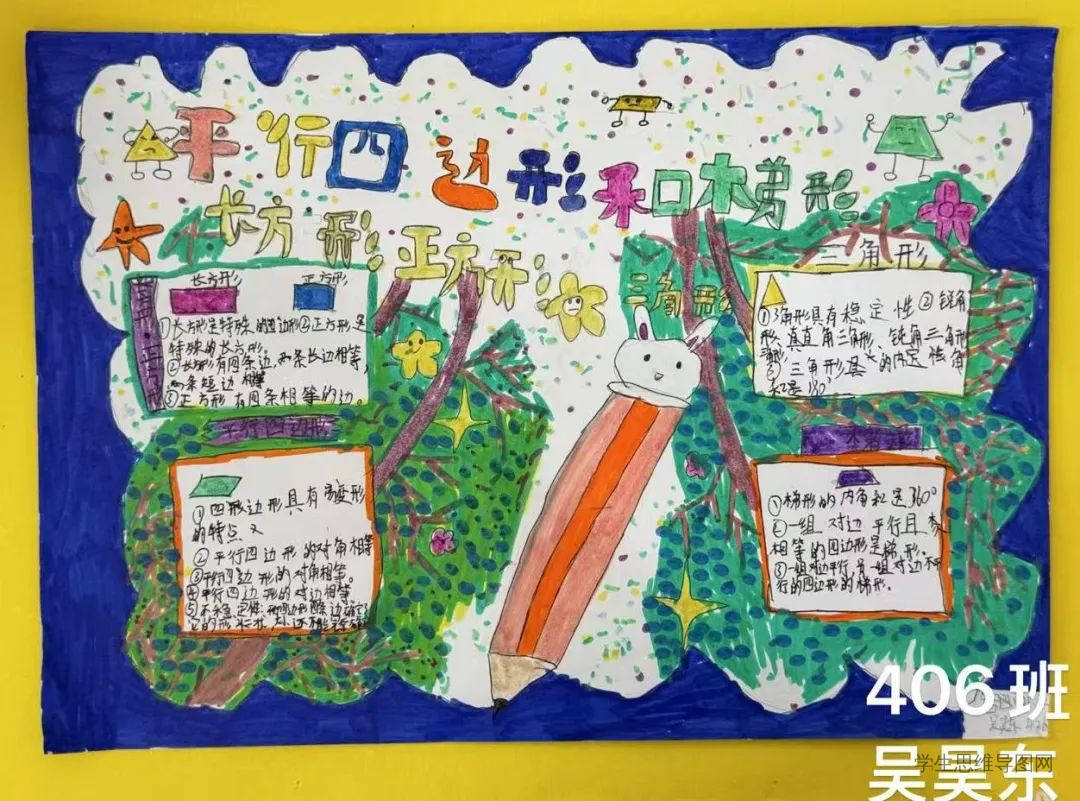 平行四边形和梯形
长方形 正方形
三角形
长方形 正方形
长方形·正方形
①长方形是特殊的四边形②正方形是
特殊的长方形。
②长方形有四条边,两条长边相等,
两条短边相等
③正方形有四条相等的边。
三角形
①三角形具有稳定性②锐角
三角形
和是180°
平行四边形
①四形边形具有易变形
的特点
②平行四边形的对角相等
③平行四边形的对角相等。
④平行四边形的对边相等
⑤不稳定性:
梯形
①梯形的内角和是360°
②一组对边平行且
相等的四边形是梯形。
③一组对边平行,另一组对边不平
行的四边形的梯形。
406班
吴昊东
学生思维导图网